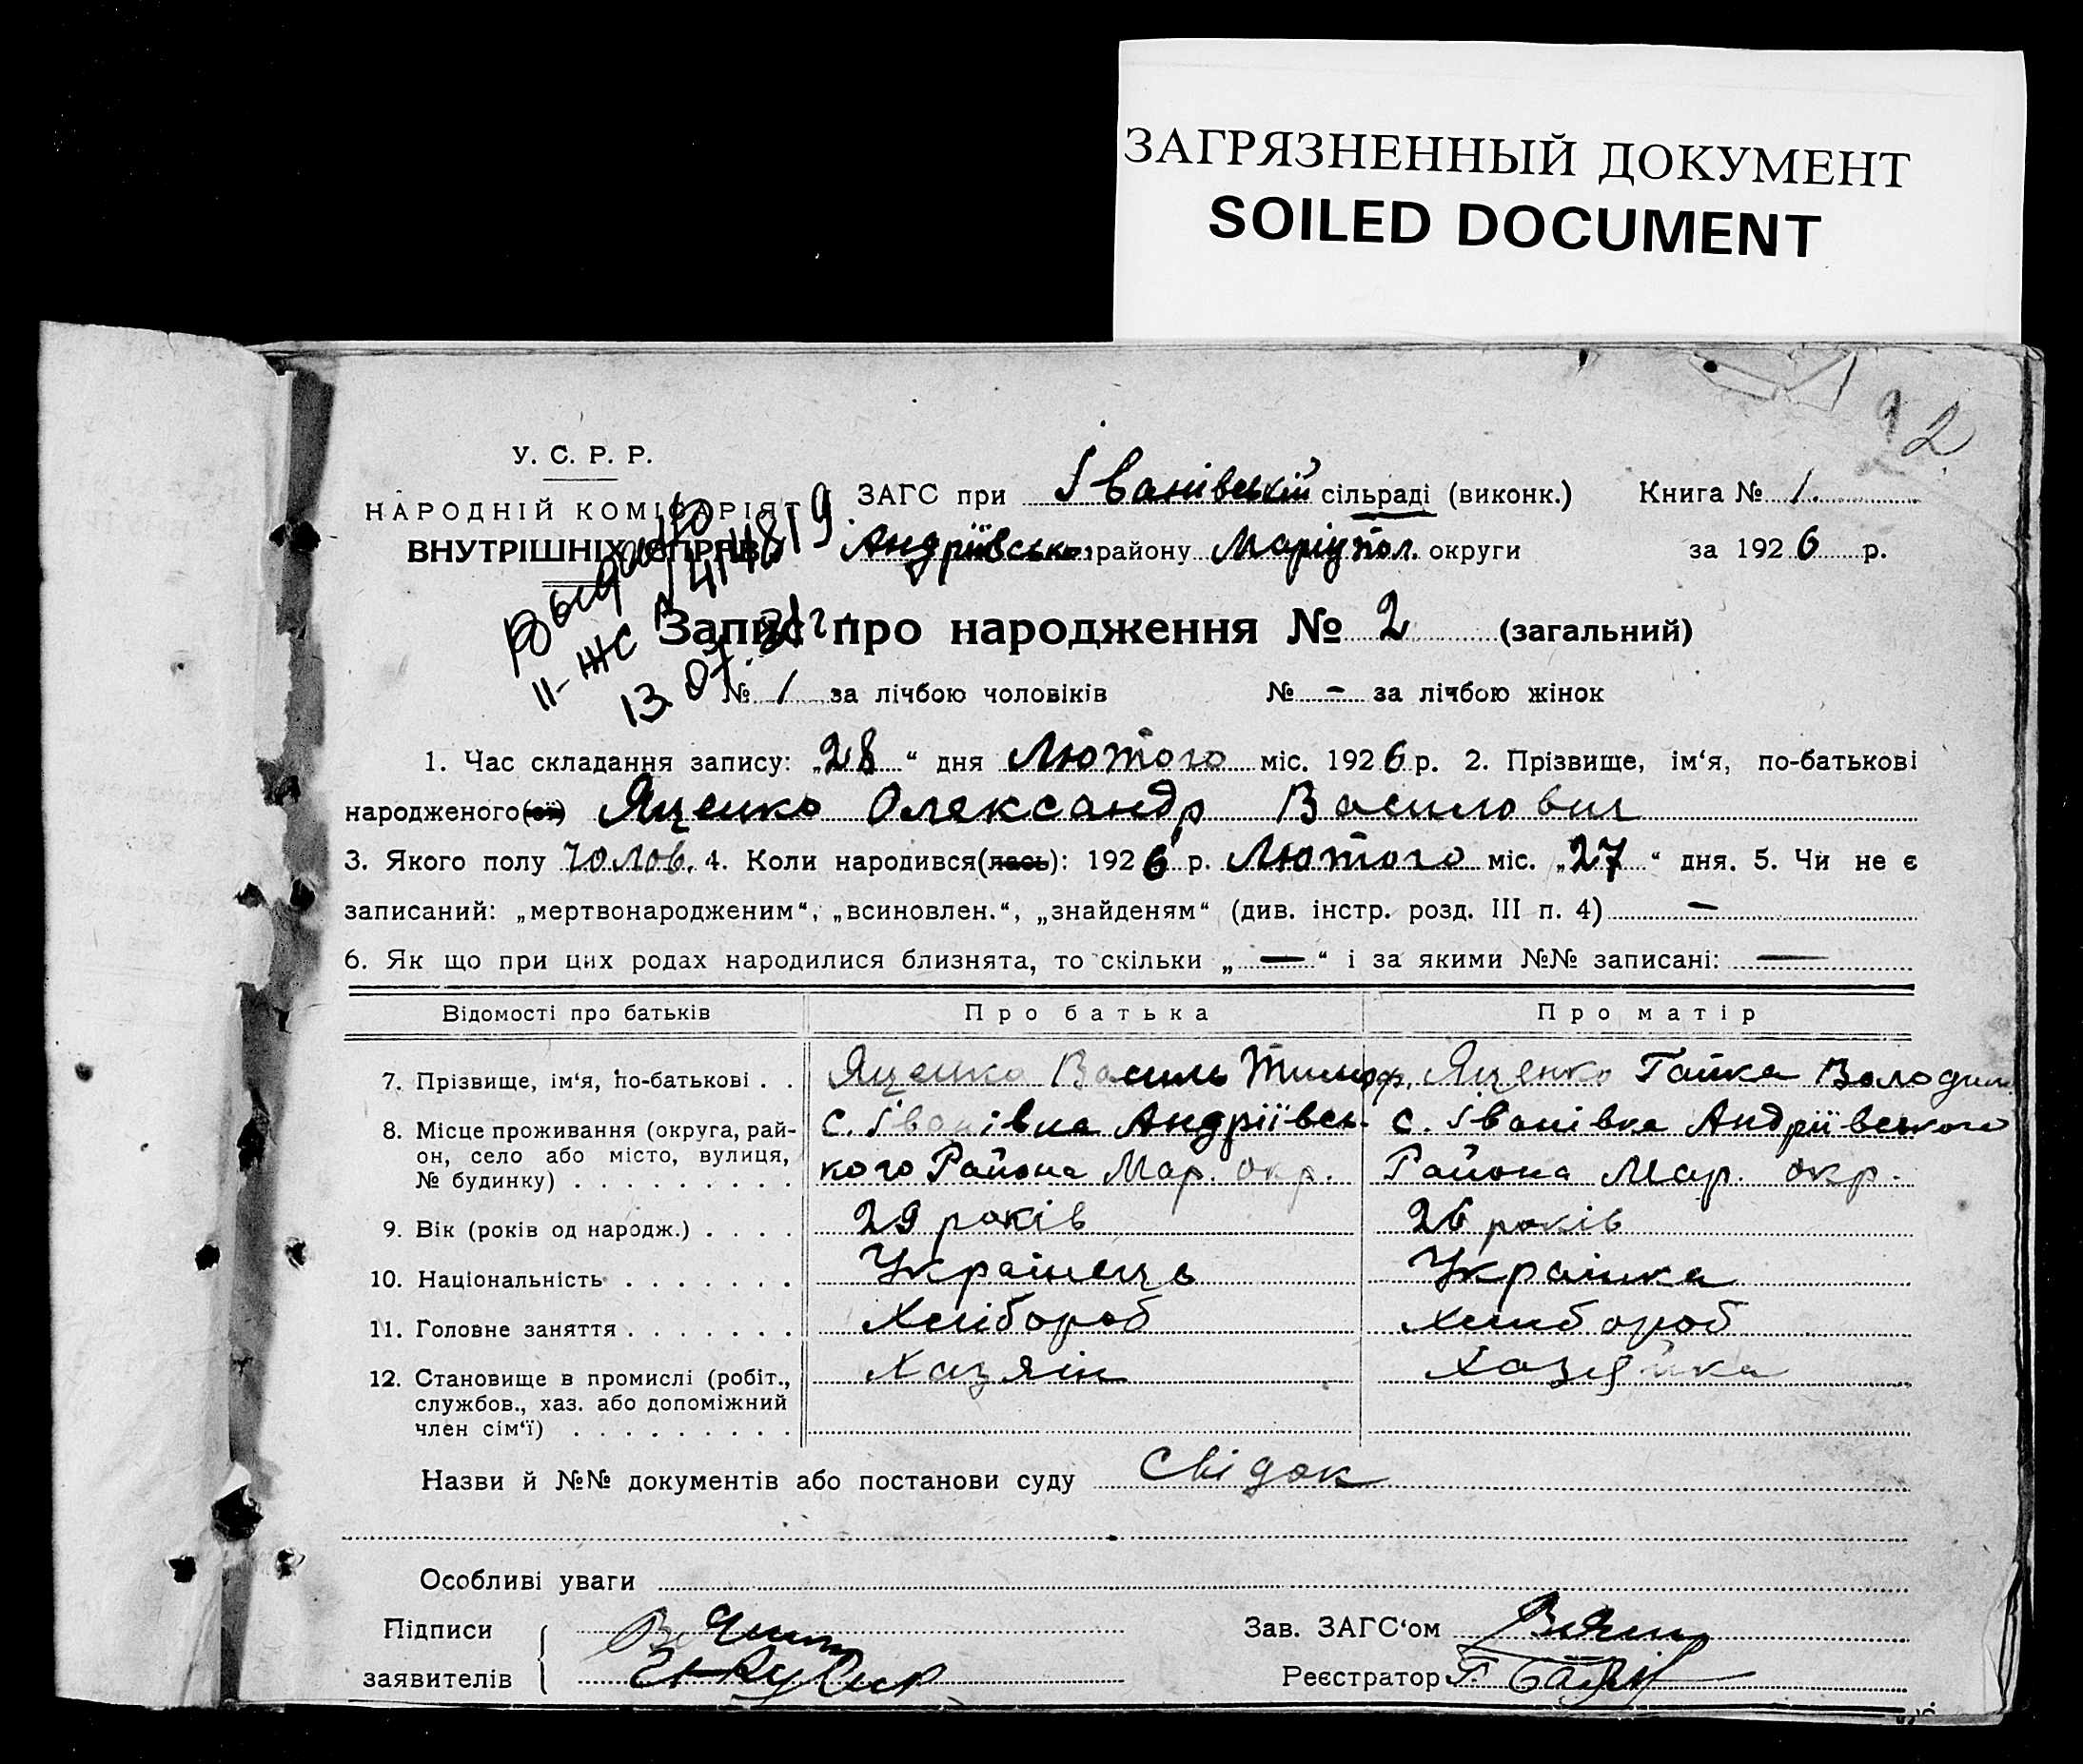 ЗАГРЯЗНЕННЫЙ ДОКУМЕНТ
SOILED DOCUMENT
2
У. С. Р. Р.
НАРОДНІЙ КОМІСАРІЯТ
ВНУТРІШНІХ СПРАВ
ЗАГС при Іванівській сільраді (виконк.) Книга № 1.
Андріївсько. району Маріупол. округи за 1926 р.
II-ЖС
13.07.
Запис про народження № 2 (загальний)
№ 1 за лічбою чоловіків № - за лічбою жінок
1. Час складання запису: „28“ дня Лютого міс. 1926 р. 2. Прізвище, ім‘я, по-батькові
народженого(ої) Яценко Олександр Василович
3. Якого полу чолов. 4. Коли народився(лась): 1926 р. Лютого міс. „27“ дня. 5. Чи не є
записаний: „мертвонародженим“, „всиновлен.“, „знайденям“ (див. інстр. розд. III п. 4) —
6. Як що при цих родах народилися близнята, то скільки „—“ і за якими №№ записані: —
Відомості про батьків Про батька Про матір
7. Прізвище, ім‘я, по-батькові . . Яценко Василь Тимоф. Яценко Гапка Володим
8. Місце проживання (округа, рай- с. Іванівка Андріївсь- с. Іванівка Андріївського
он, село або місто, вулиця,
№ будинку) . . . . . . . . . кого Района Мар. окр. Района Мар. окр.
9. Вік (років од народж.) . . . . 29 років 26 років
10. Національність . . . . . . . Українець Українка
11. Головне заняття . . . . . . . Хлібороб Хлибороб
12. Становище в промислі (робіт., Хазяїн Хозяйка
службов., хаз. або допоміжний
член сім‘ї) . . . . . . . . .
Назви й №№ документів або постанови суду Свідок
Особливі уваги
Підписи
заявителів
Зав. ЗАГС‘ом
Реєстратор